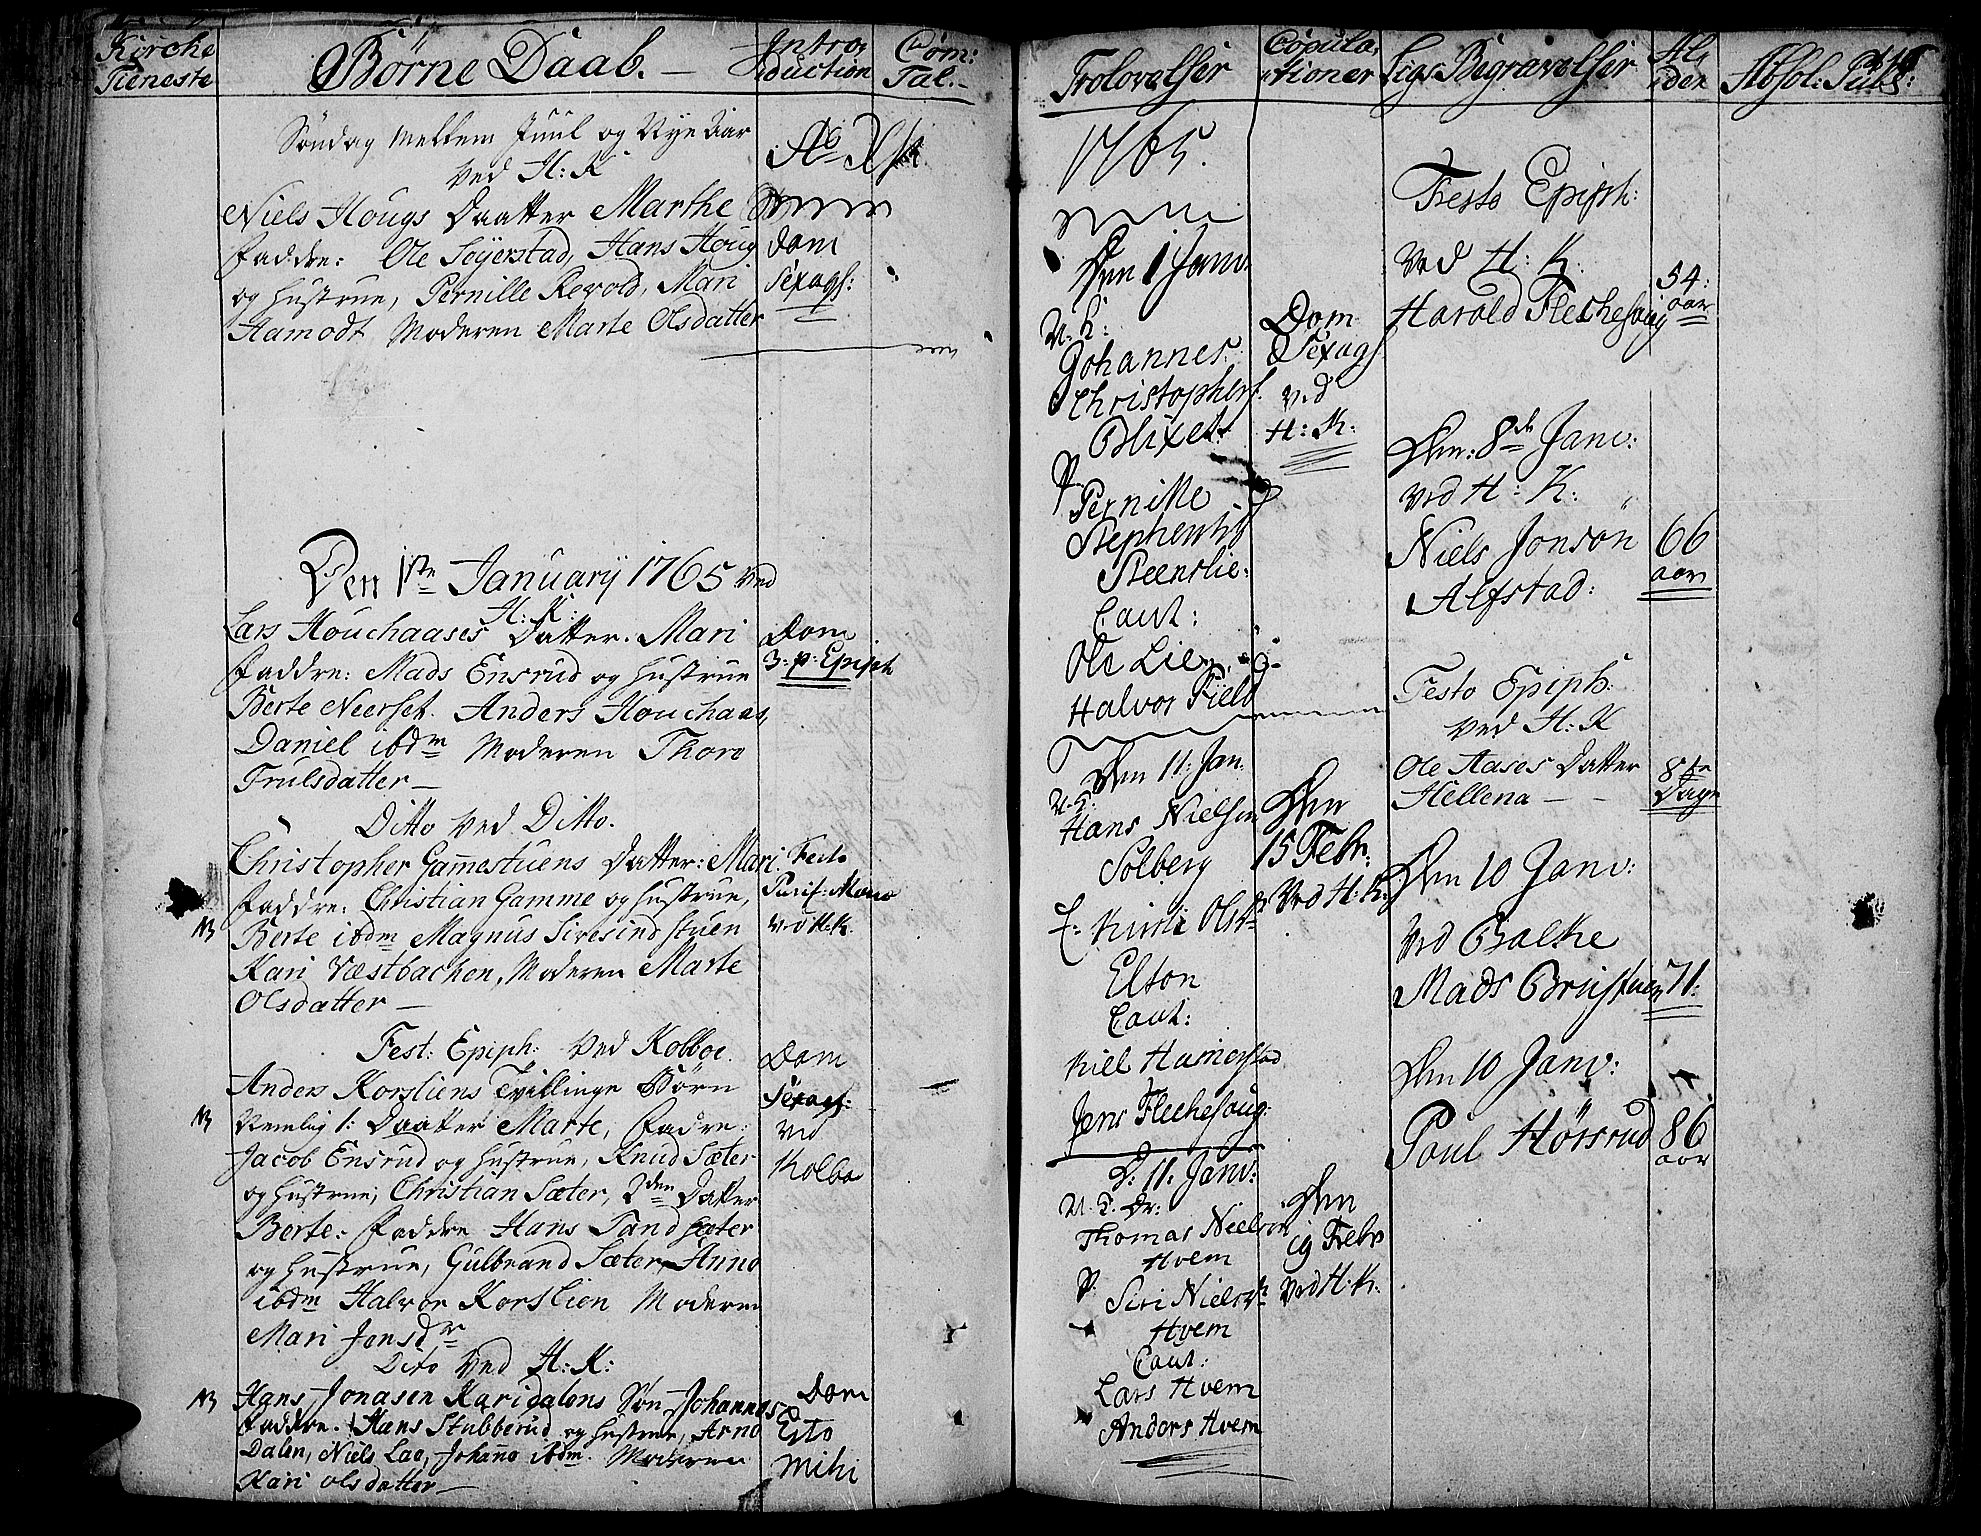 Kirche
Tieneste
Börne Daab. —
Intro,
duction
Com:
Tal. -
Söndag mellem Juul og Nye Aar
ved H: K
Niels Hougs Daatter Marthe
Faddre: Ole Söyerstad, Hans Houg
og hustrue, Pernille Revold, Mari
Aamodt Moderen Marte Olsdatter
Dom
Sexags:
Den 1ste January 1765 ved
H: K:
Lars Houchaases Datter. Mari
Faddre: Mads Ensrud og hustrue
Berte Neerset. Anders Houchaas,
Daniel ibdm Moderen Thore
Trulsdatter —
Dom
3: p: Epiph
Ditto ved Ditto.
Christopher Gamestuens Datter: Mari
Faddre: Christian Gamme og hustrue,
NB Berte ibdm Magnus Siresindstuen
Kari Væstbachen, Moderen Marte
Olsdatter —
Festo
Purif: Mariæ
ved H: K.
Fest: Epiph: ved Kolboe.
Anders Korsliens Tvillinge Börn
NB Nemlig 1: Daatter Marte, Fadre:
Jacob Ensrud og hustrue, Knud Sæter
og hustrue, Christian Sæter, 2den Datter
Berte: Faddre Hans Sandsæter
og hustrue, Gulbrand Sæter, Anne
ibdm Halvor Korslien Moderen
Mari Jensdr
Dom
Sexags:
ved
Kolbo
Dito ved H: K:
NB Hans Jonasen Karidalens Søn Johannes
Faddre. Hans Stubberud og hustrue, Arne
Dalen, Niels Lae, Johane ibdm. Moderen
Kari Olsdatter —
Dom
Esto
Mihi
Trolovelser
Copula,
tioner
Ligs Begravelser
Al,
der
Absol: Publ:
1765.
Den 1 Janv.
U. K:
Johannes
Christophers.
Blixet.
P.
Pernille
Stephensd
Steenslie:
Caut:
Ole Lien,
Halvor Field
Dom
Sexags
ved
H: K.
Den 11: Jan.
U. K.
Hans Nielsen
Solberg
Olsd
Elton
Caut:
Kiel Hamerstad
Jens Flechesoug:
Den
15 Febr:
ved H: K.
D: 11: Janv:
U. K. Dr:
Thomas Nielsen
Hvem
P.
Siri Nielsd
Hvem
Caut:
Lars Hvem
Anders Hvem
Den
19 Febr
ved H: K.
Festo Epiph:
ved H: K.
Harold Flechesoug
54:
aar
Den: 8de Janv:
ved H: K:
Niels Jonsön
Alfstad:
66
aar
Festo Epiph:
ved H: K
Ole Aases Datter
Hellena — -
8te
Dage
Den 10 Janv:
ved Balke
Mads Bruistuen
71:
Den 10 Janv:
Poul Hörsrud
86
aar